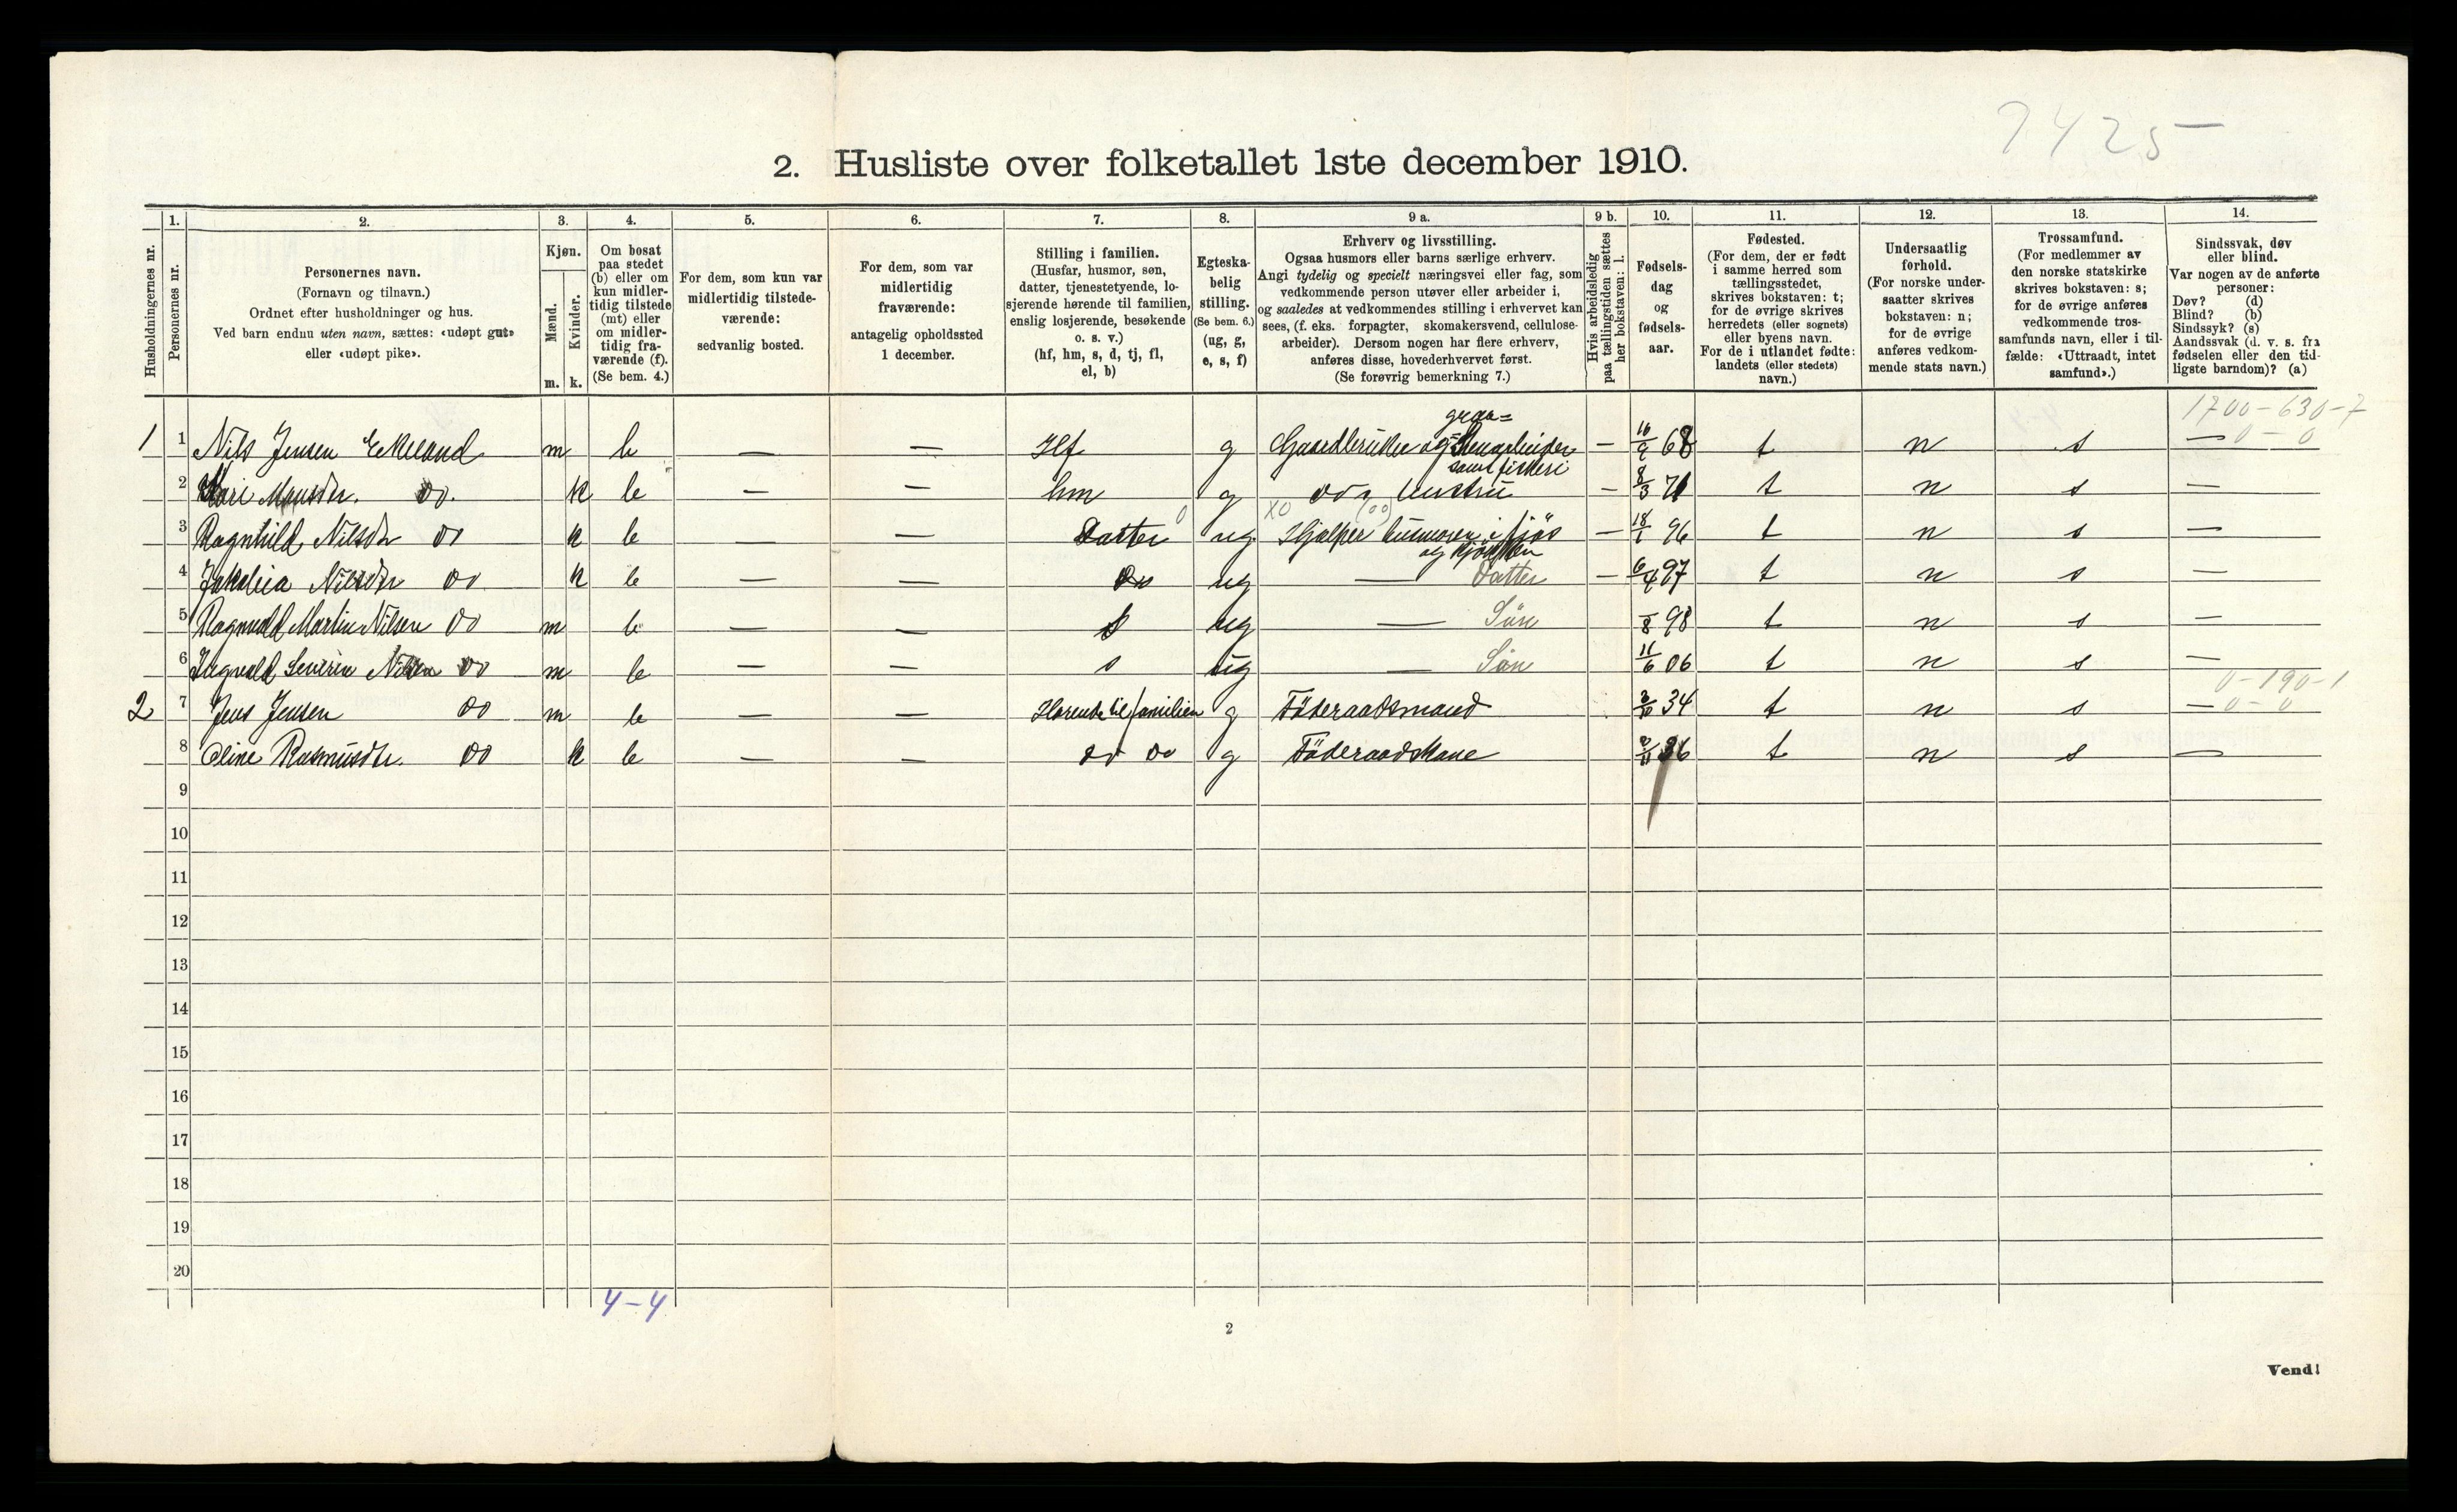 7425
2. Husliste over folketallet 1ste december 1910.
Husholdningernes nr.
1. Personernes nr.
2. Personernes navn.
(Fornavn og tilnavn.)
Ordnet efter husholdninger og hus.
Ved barn endnu uten navn, sættes: «udøpt gut»
eller «udøpt pike».
3. Kjøn.
Mænd. Kvinder.
m. k.
4. Om bosat
paa stedet
(b) eller om
kun midler-
tidig tilstede
(mt) eller
om midler-
tidig fra-
værende (f).
(Se bem. 4.)
5. For dem, som kun var
midlertidig tilstede-
værende:
sedvanlig bosted.
6. For dem, som var
midlertidig
fraværende:
antagelig opholdssted
1 december.
7. Stilling i familien.
(Husfar, husmor, søn,
datter, tjenestetyende, lo-
sjerende hørende til familien,
enslig losjerende, besøkende
o. s. v.)
(hf, hm, s, d, tj, fl,
el, b)
8. Egteska-
belig
stilling.
(Se bem. 6.)
(ug, g,
e, s, f)
9 a. Erhverv og livsstilling.
Ogsaa husmors eller barns særlige erhverv.
Angi tydelig og specielt næringsvei eller fag, som
vedkommende person utøver eller arbeider i,
og saaledes at vedkommendes stilling i erhvervet kan
sees, (f. eks. forpagter, skomakersvend, cellulose-
arbeider). Dersom nogen har flere erhverv,
anføres disse, hovederhvervet først.
(Se forøvrig bemerkning 7.)
9 b. Hvis arbeidsledig
paa tællingstiden sættes
her bokstaven: l.
10. Fødsels-
dag
og
fødsels-
aar.
11. Fødested.
(For dem, der er født
i samme herred som
tællingsstedet,
skrives bokstaven: t;
for de øvrige skrives
herredets (eller sognets)
eller byens navn.
For de i utlandet fødte:
landets (eller stedets)
navn.)
12. Undersaatlig
forhold.
(For norske under-
saatter skrives
bokstaven: n;
for de øvrige
anføres vedkom-
mende stats navn.)
13. Trossamfund.
(For medlemmer av
den norske statskirke
skrives bokstaven: s;
for de øvrige anføres
vedkommende tros-
samfunds navn, eller i til-
fælde: «Uttraadt, intet
samfund».)
14. Sindssvak, døv
eller blind.
Var nogen av de anførte
personer:
Døv? (d)
Blind? (b)
Sindssyk? (s)
Aandssvak (d. v. s. fra
fødselen eller den tid-
ligste barndom)? (a)
1700-630-7
graa=
1 1 Nils Jensen Ekeland m b — — Hf g Gaardbruker og Stenarbeider — 16/9 68 t n s — 0-0
samt fiskeri
2 Kari Monsdtr. do. k b — — hm g do s hustru — 8/3 71 t n s —
3 Ragnhild Nilsdtr do k b — — Datter 0 ug Hjælper husmoren i fjøs — 18/1 96 t n s —
og kjøkken
4 Nilsdtr do k b — — ug — Datter — 6/4 97 t n s —
5 Ragnvald Martin Nilsen do m b — — s ug — Søn /8 98 t n s —
6 Ingvald Severin Nilsen do m b — — s ug — Søn 11/6 06 t n s —
0-190-1
2 7 Jens Jensen do m b — — Hørende til familien g Føderaadsmand 3/10 34 t n s — 0-0
8 Oline Rasmusdtr. do k b — — do do g Føderaadskone 36 t n s —
9
10
11
12
13
14
15
16
17
18
19
20
4-4
2
Vend!